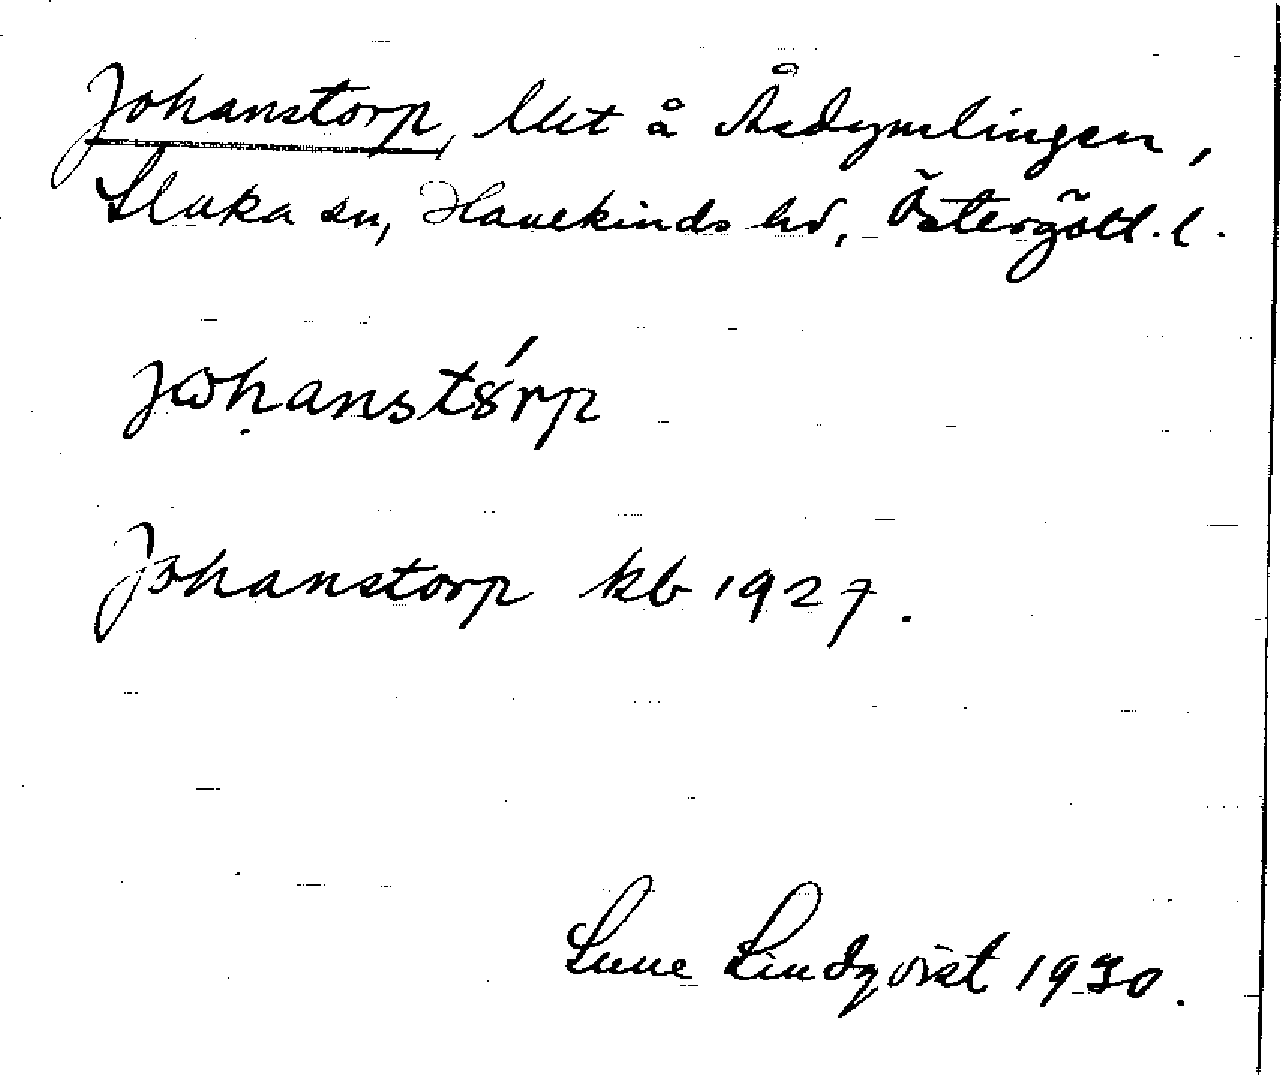 Johanstorp, lht å Åsdymlingen,
Slaka sn, Hanekinds hd, Östergötl. l.
Jωhanstó̤rp
Johanstorp kb 1927.
Sune Lindqvist 1930.